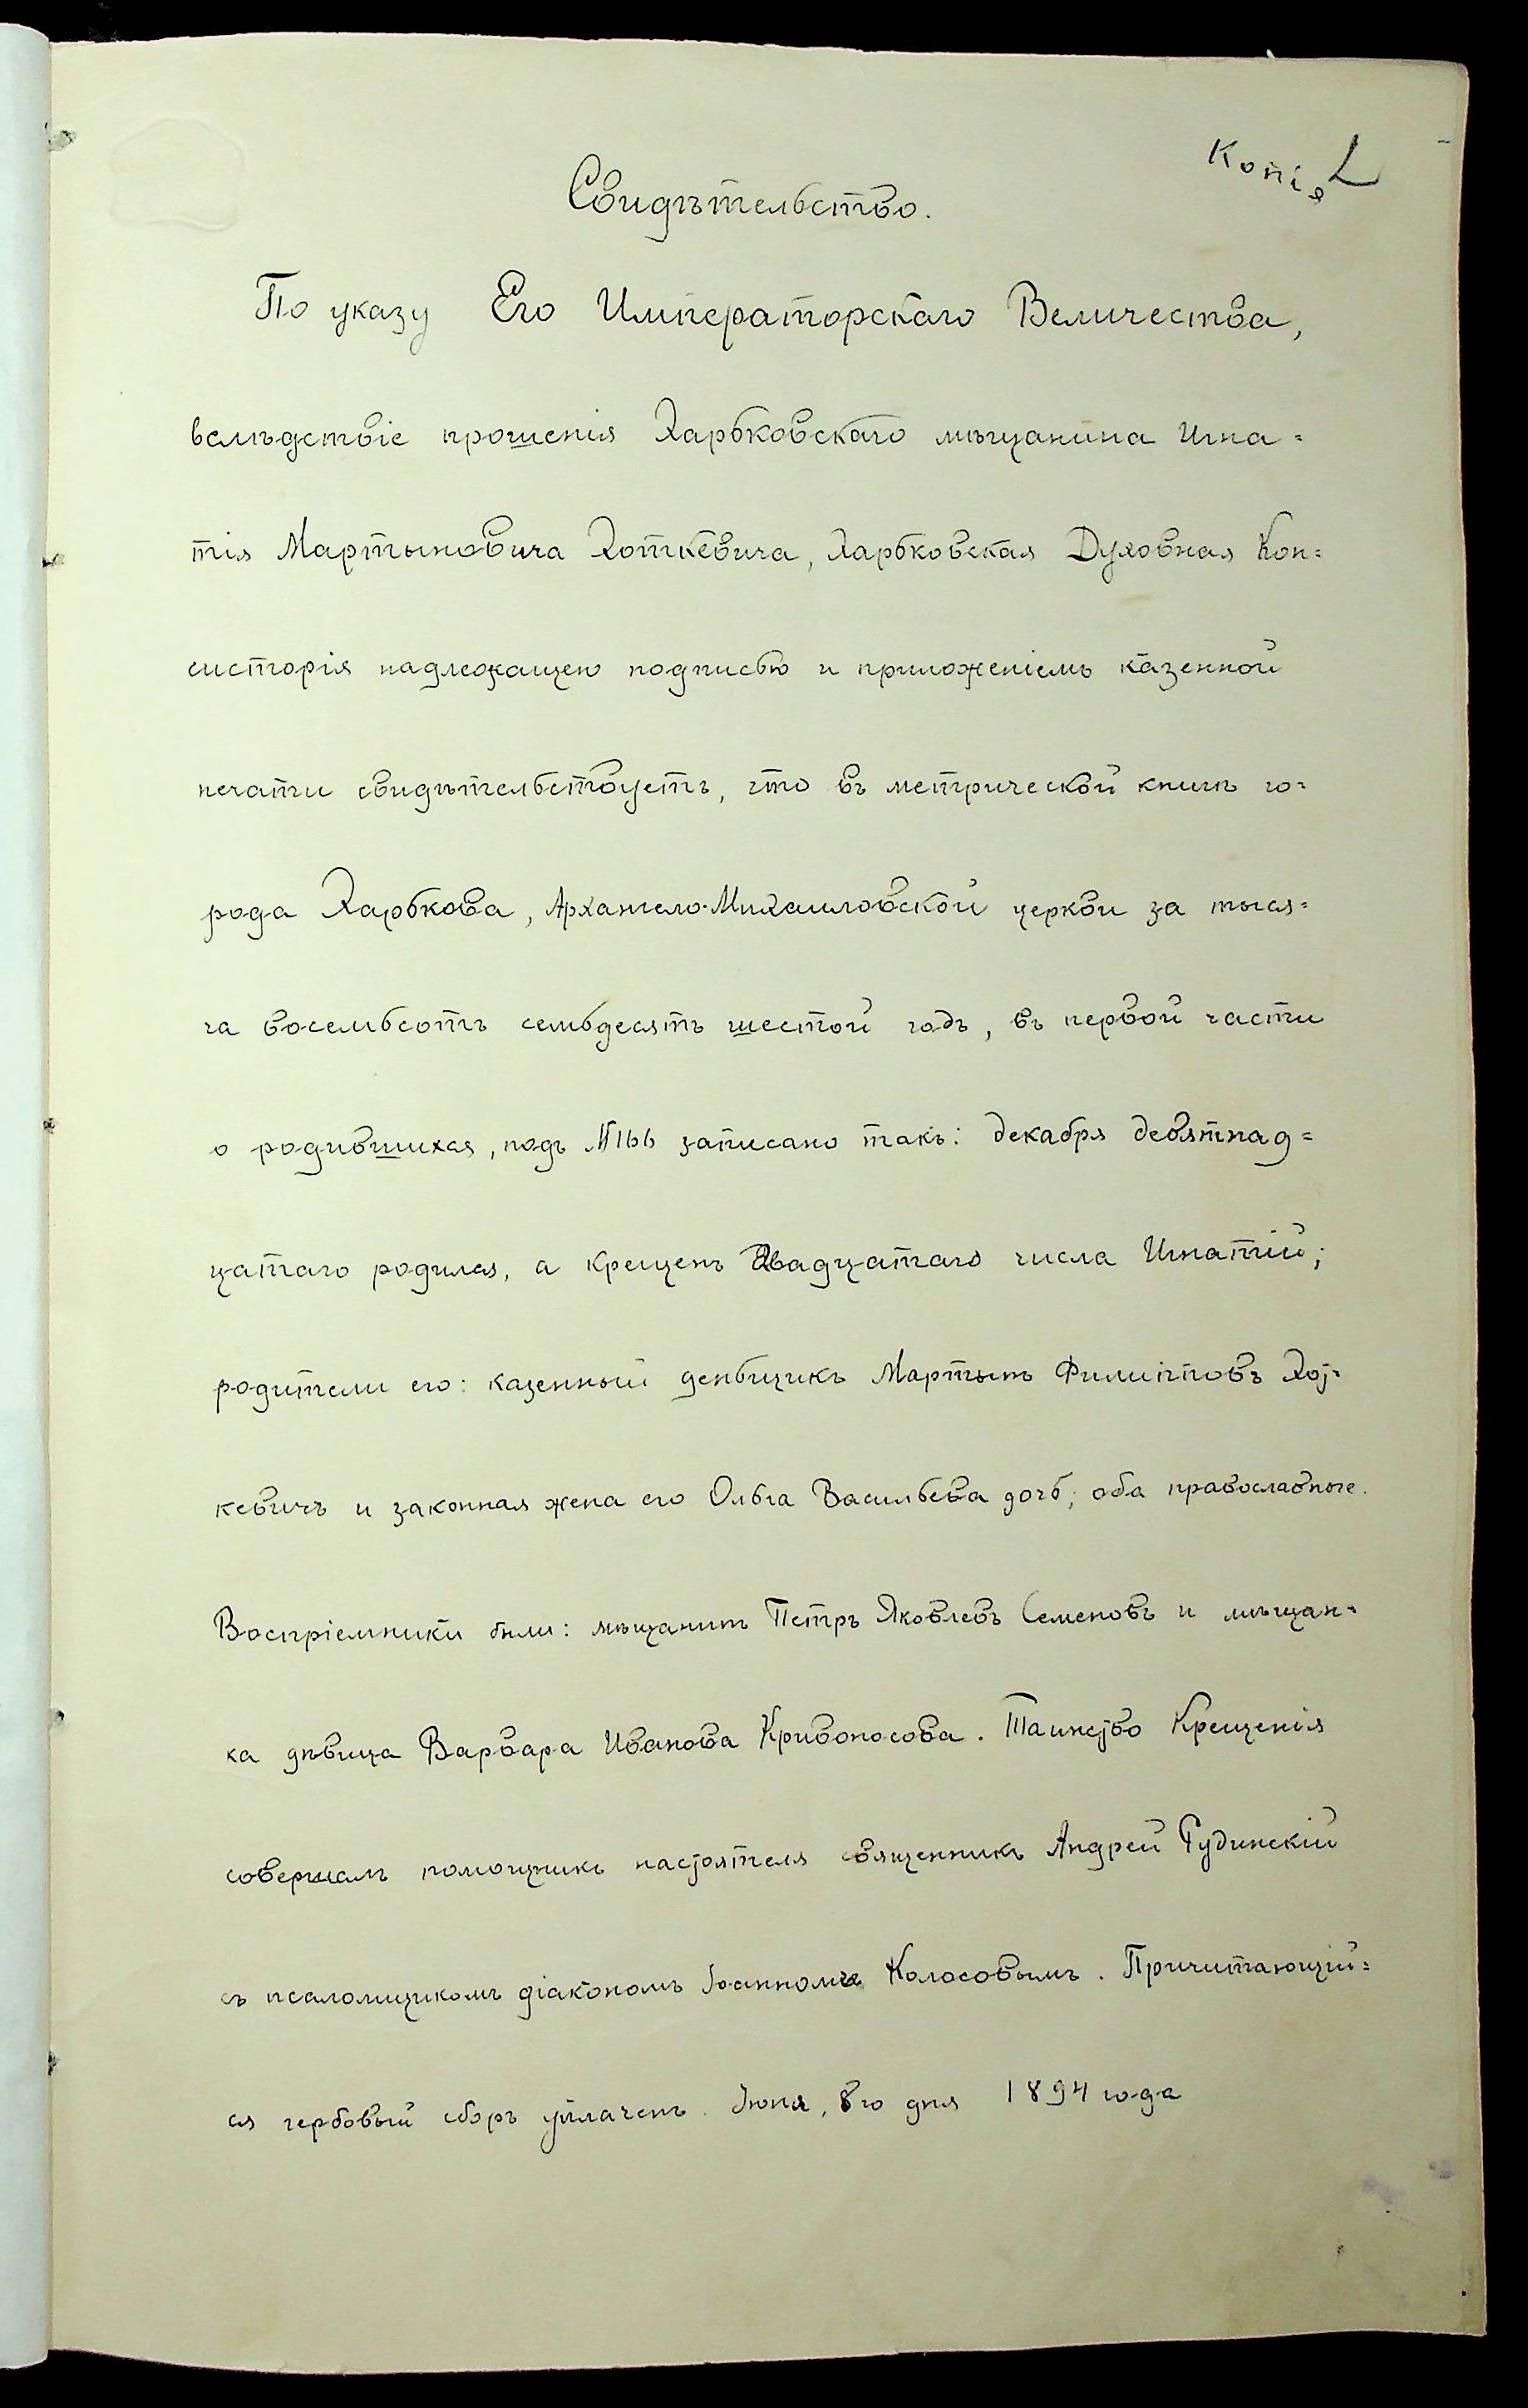 Копія
Свидѣтельство.
По указу Его Императорскаго Величества,
вслѣдствіе прошенія Харьковскаго мѣщанина Игна=
тія Мартыновича Хоткевича, Харьковская Духовная Кон=
систорія надлежащею подписью и приложеніемъ казенной
печати свидѣтельствуетъ, что въ метрической книгѣ го=
рода Харькова, Архангело-Михаиловской церкви за тыся=
ча восемьсотъ семьдесятъ шестой годъ, въ первой части
о родившихся, подъ № 166 записано такъ: декабря девятнад=
цатаго родился, а крещенъ двадцатаго числа Игнатій;
родители его: казенный деньщикъ Мартынъ Филипповъ Хот=
кевичъ и законная жена его Ольга Васильева дочь; оба православные.
Воспріемники были: мѣщанинъ Петръ Яковлевъ Семеновъ и мѣщан=
ка дѣвица Варвара Иванова Кривоносова. Таинство Крещенія
совершалъ помощникъ настоятеля священникъ Андрей Рудинскій
съ псаломщикомъ діакономъ Іоанномъ Колосовымъ. Причитающій=
ся гербовый сборъ уплаченъ. Іюня, 8го дня 1894 года